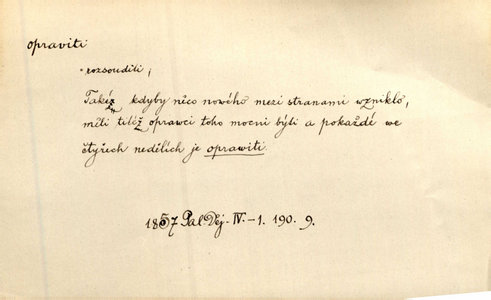 opraviti
rozsouditi;
Takéž kdyby něco nového mezi stranami wzniklo,
měli tilíž oprawci toho mocni býti a pokaždé we
čtyřech nedělích je oprawiti.
1857 Pal. Děj. IV.-1. 190. 9.